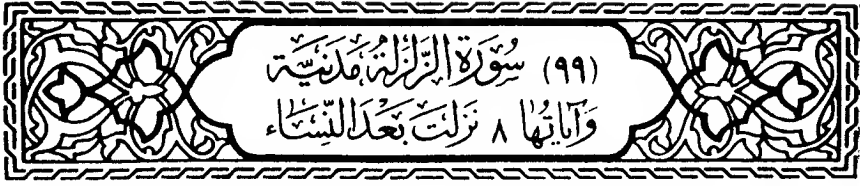 (٩٩) سُورَة الزَّلزَلة مَدَنيَّة
وَآيَاتُهَا ٨ نَزلَت بَعْدَ النِّسَاء